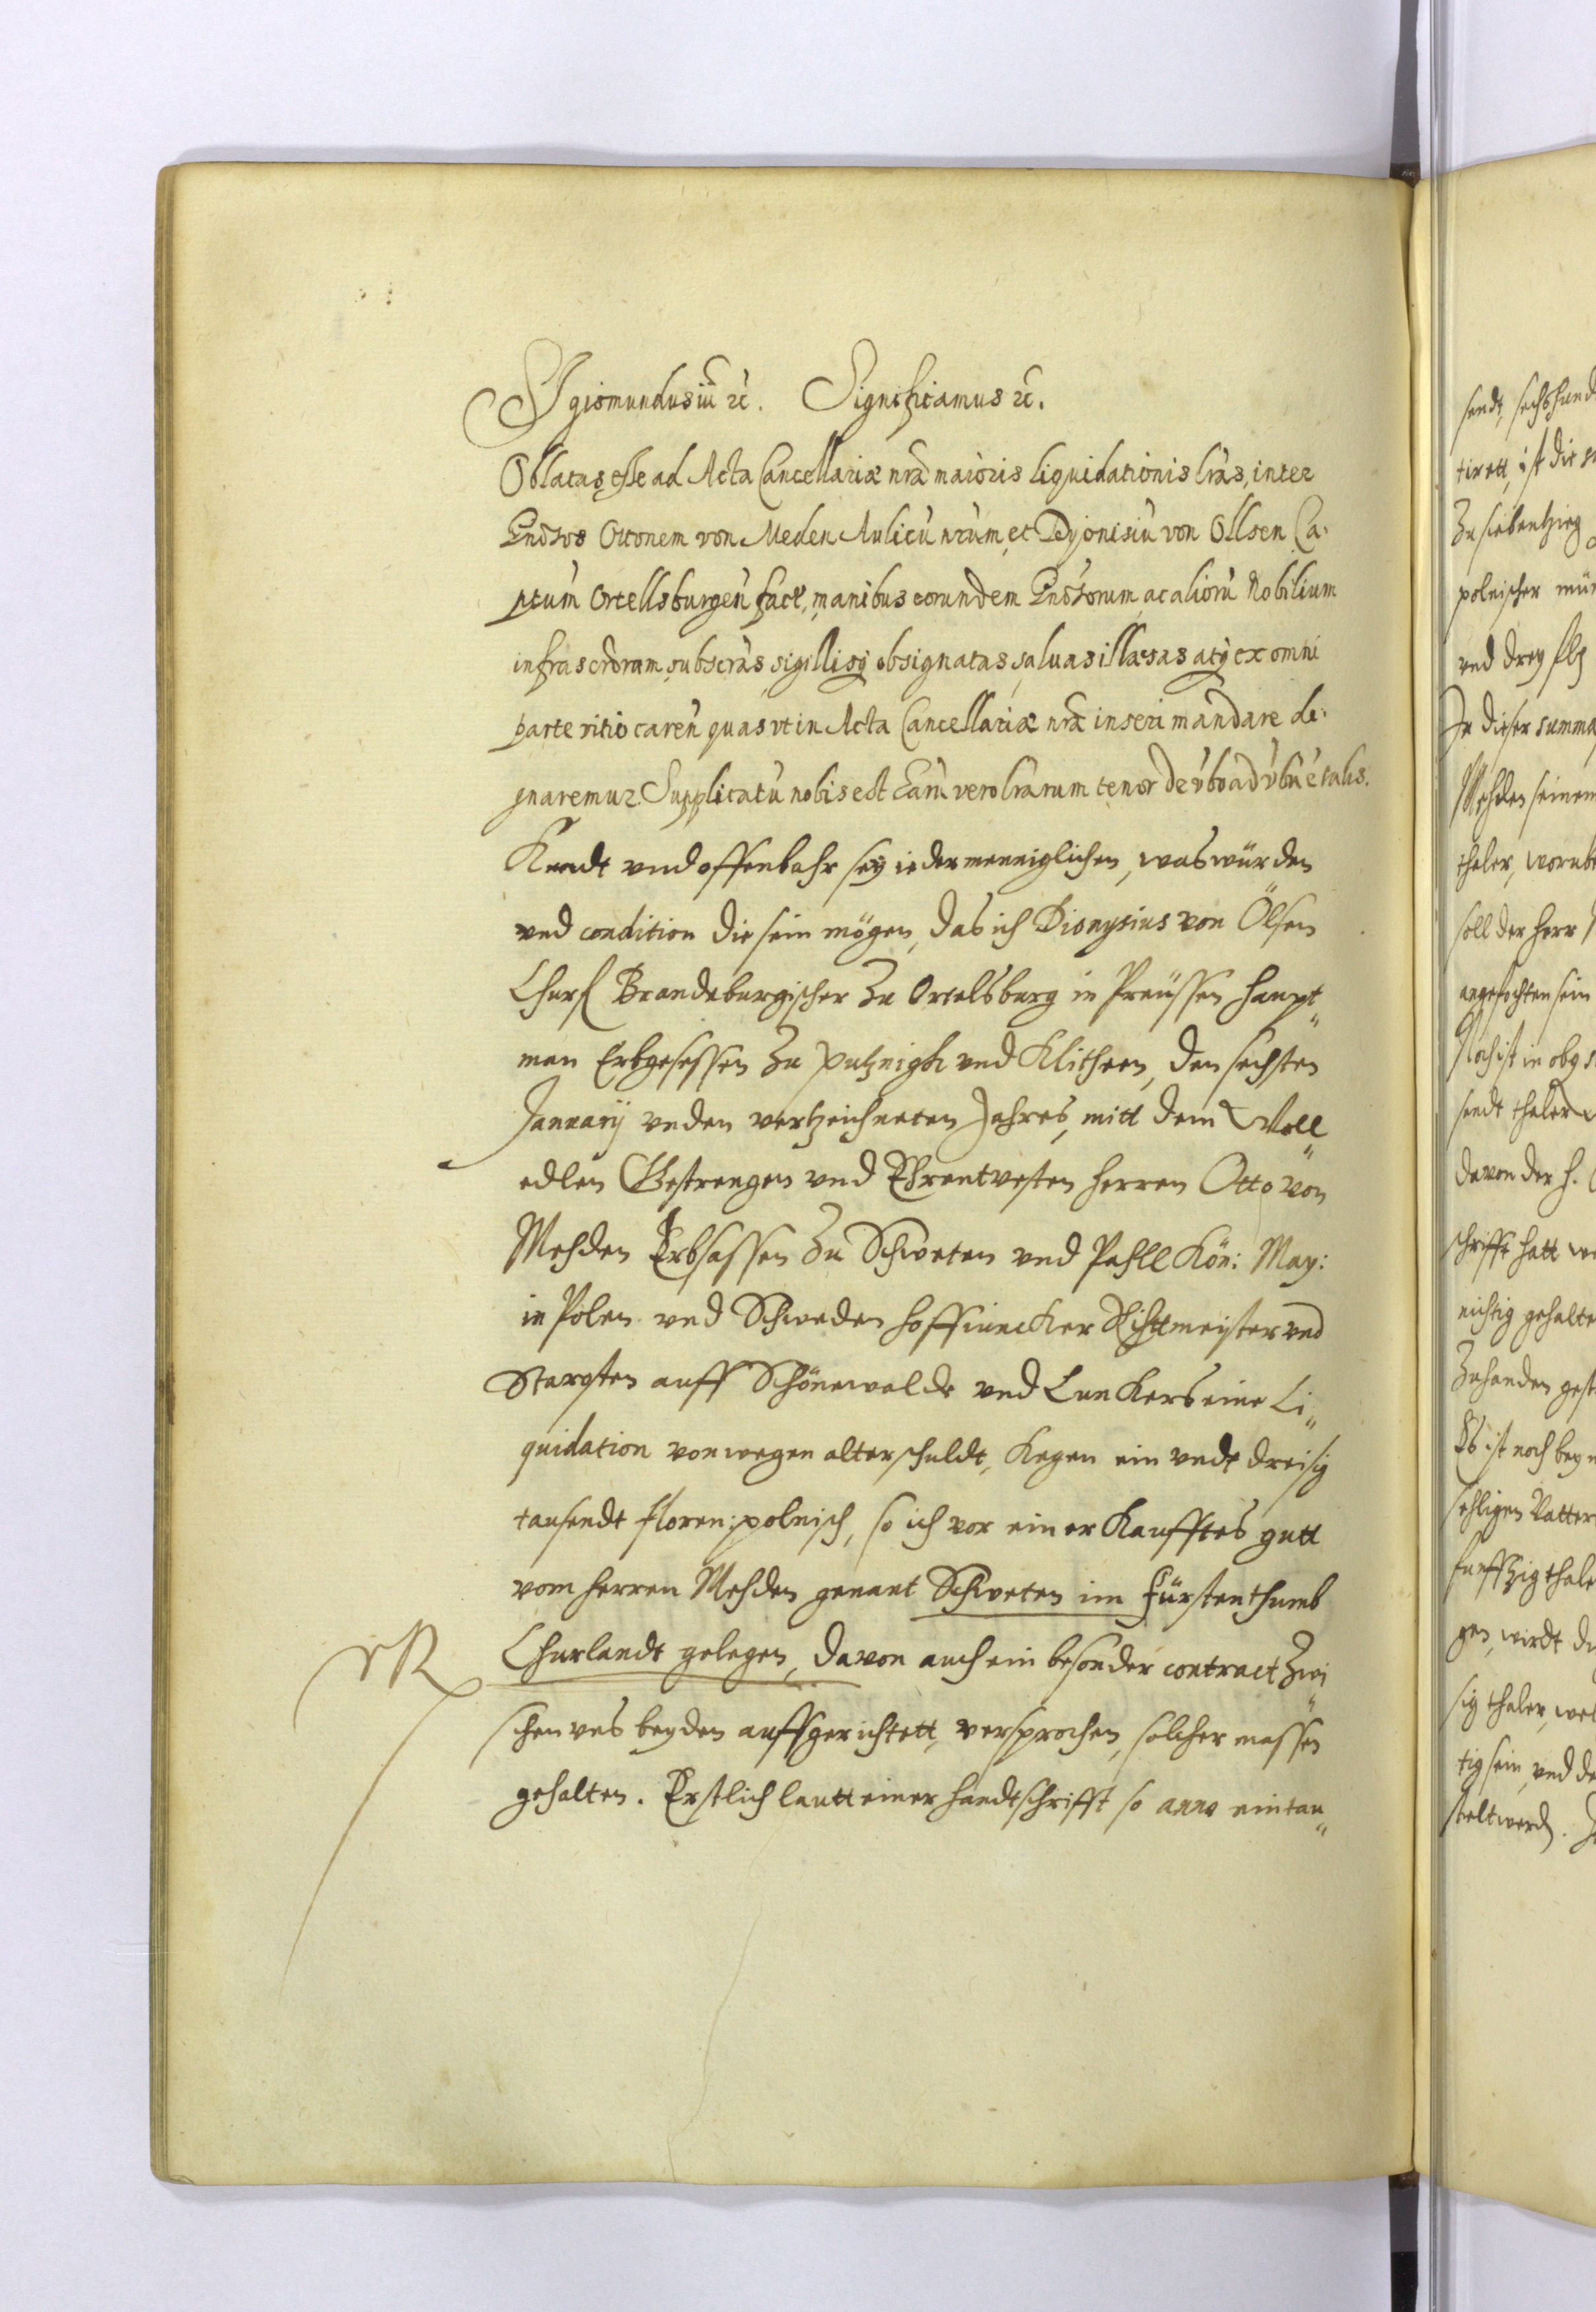 Sigismundus iii ꝛc. Significamus ꝛc.
Oblatas esse ad Acta Cancellariæ nrae maioris liquidationis lras, inter
Gnosos Ottonem von Meden Aulicũ nrum, et Dyonisiũ von Ollsen Ca-
pteum Ortellsburgeñ fact, manibus eorundem Gnosorum, ac alioru Nobilium
infrascrorum subscras sigillisq obsignatas, saluas illæsas atq ex omni
parte vitio careñ quas vt in Acta Cancellariæ nrae inseri mandare de-
gnaremur. Supplicatũ nobis est Earũ vero lrarum tenor de vbo ad vbũ e talis.
Kundt vnd offenbahr sey iedermenniglichen, was würden
vnd condition die sein mögen, das ich Dionysius von Ölsen
Churf Brandeburgischer zu Ortelsburg in Preüssen haupt„
man Erbgesessen zu Putznigk vnd Klitheen, den sechsten
January vnden vertzeichneten Jahres, mitt dem Woll„
edlen Gestrengen vnd Ehrentvesten herren Otto von
Mehden Erbsassen zu Schweten vnd Pahll Kön: May:
in Polen vnd Schweden hoffiuncker Rihttmeister vnd
Starosten auff Schönewalde vnd Lunkers eine Li„
quidation von wegen alter schuldt, kegen ein vndt dreisig
tausendt floren: polnisch, so ich vor ein er kaufftes gutt
vom herren Mehden genant Schweten im Fürstenthumb
Churlandt gelegen, davon auch ein besonder contract zwi„
schen vns beyden auffgerichtett, versprochen, solcher massen
gehalten. Erstlich lautt einer handtschrifft so anno ein tau„
VR
sendt, sechshund
tirett, ist die
Zu siebentzieg
polnischer mün
vnd drey flp
In dieser summa
Mehden seinem
thaler, worub
soll der herr
angefochten sein
Noch ist in obg
sendt thaler
davon der h.
schrifft hatt
nichtig gehalte
Zuhanden gest
Es ist noch bey
sehligen Vatter
funffzig thale
gen, wirdt
sig thaler, wel
tig sein, vnd de
stelt werd.